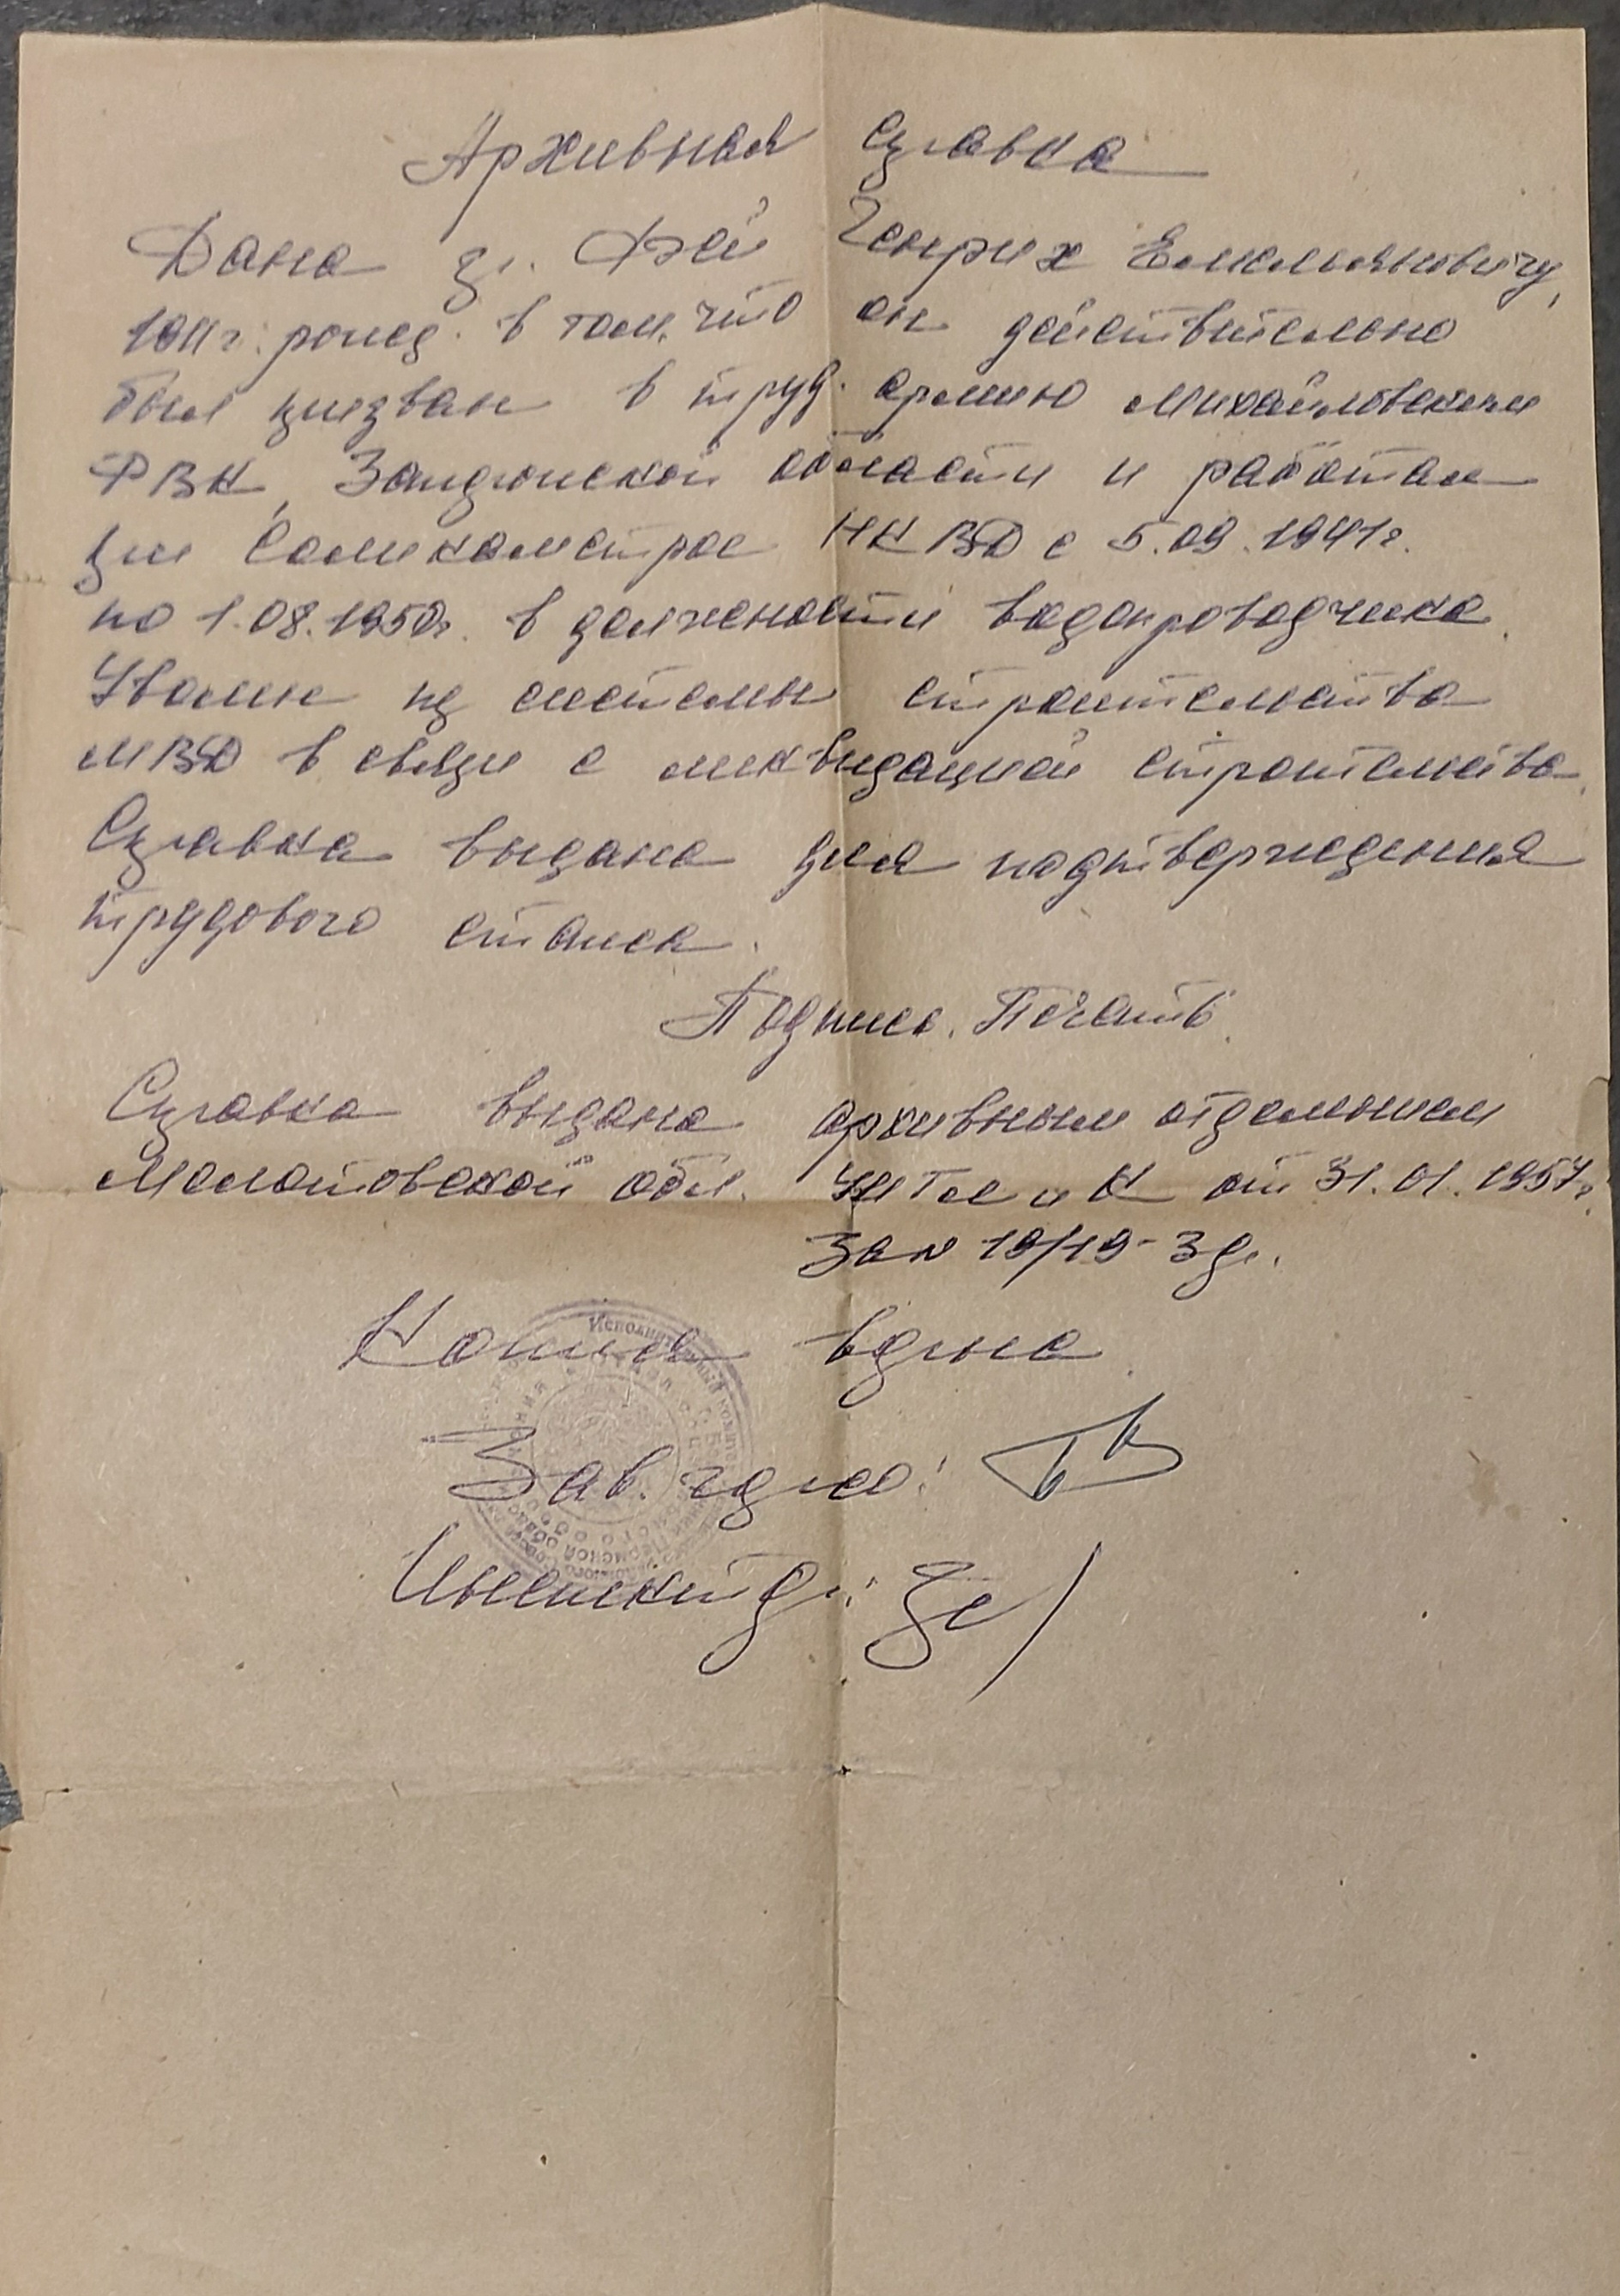 Архивная справка
Дана гр. Фэй Генрих Емельяновичу,
1911 г. рожд. в том, что он действительно
был призван в труд. армию Михайловским
РВК, Запорожской области и работал
при Соликамстрое НКВД с 5.09.1941 г.
по 1.08.1950 г. в должности водопроводчика.
Уволен из системы строительства
МВД в связи с ликвидацией строительства.
Справка выдана для подтверждения
трудового стажа.
Подпись. Печать.
Справка выдана архивным отделением
Молотовской обл. УИТЛ и К от 31.01.1957 г.
за N 19/19-3
Копия верна
Зав. рай.
Исполнительный комитет
Пермской области